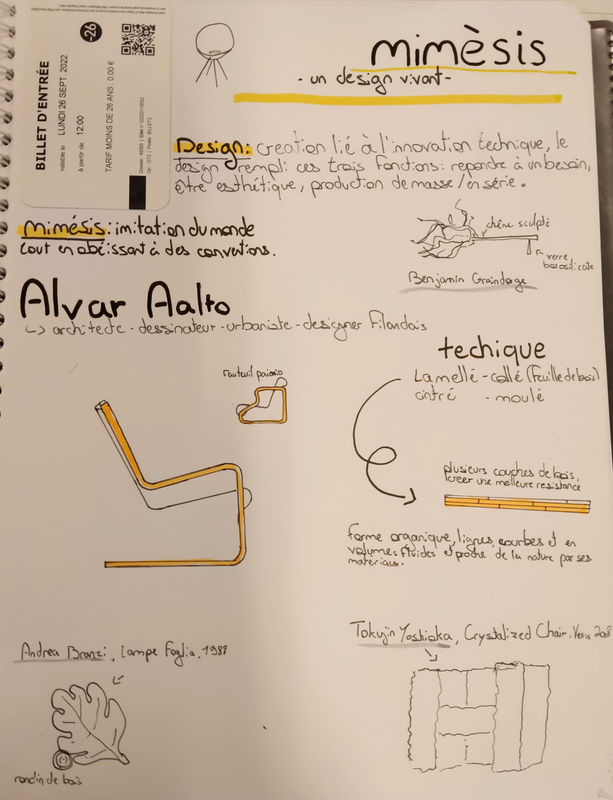 BILLET D'ENTRÉE
valable le LUNDI 26 SEPT. 2022
à partir de 12:00
TARIF MOINS DE 26 ANS - 0,00 €
-26
mimèsis
- un design vivant -
Design: création lié à l'innovation technique, le
design rempli ces trois fonctions: repondre à un besoin,
être esthétique, production de masse / en série.
Mimésis: imitation du monde
tout en obéissant à des conventions.
chêne sculpté
verre
borosilicate
Benjamin Graindorge
Alvar Aalto
↳ architecte - dessinateur - urbaniste - designer Filandais
Fauteuil paimio
techique
Lamellé - collé (feuille de bois)
cintré - moulé
plusieurs couches de bois,
creer une meilleure resistance
forme organique, lignes courbes et en
volumes fluides et proche de la nature par ses
materiaux.
Andrea Branzi, Lampe Foglia, 1988
rondin de bois
Tokujin Yoshioka, Crystalized Chair, Venus 2008